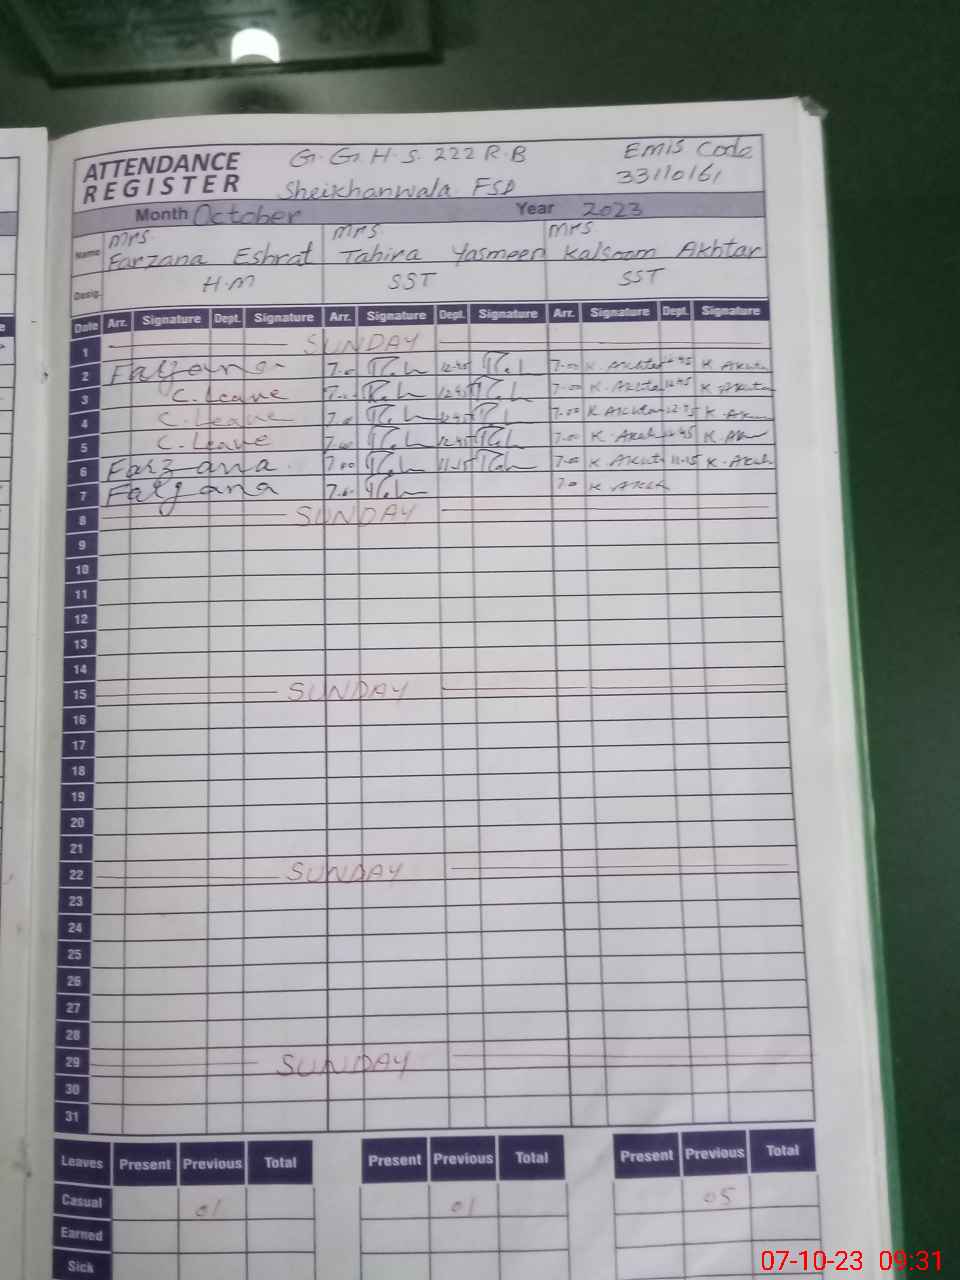 ATTENDANCE REGISTER
G.G.H.S. 222 R.B
Sheikhanwala FSD
EMIS Code
33110161
Month October Year 2023
Name Mrs. Farzana Eshrat Mrs. Tahira Yasmeen Mrs. Kalsoom Akhtar
Desig. H.M SST SST
Date Arr. Signature Dept. Signature Arr. Signature Dept. Signature Arr. Signature Dept. Signature
1 SUNDAY
2 Farzana 7.00 12.45 7.00 K. Akhtar 12.45
3 C. Leave 12.45 7.00 12.45
4 C. Leave 7.00 K Akhtar
5 C. Leave 7.00 12.45 7.00
6 Farzana 7.00 11.15 7.00 11.15
7 Farzana
8 SUNDAY
9
10
11
12
13
14
15 SUNDAY
16
17
18
19
20
21
22 SUNDAY
23
24
25
26
27
28
29 SUNDAY
30
31
Leaves Present Previous Total Present Previous Total Present Previous Total
Casual 01 01 05
Earned
Sick
07-10-23 09:31